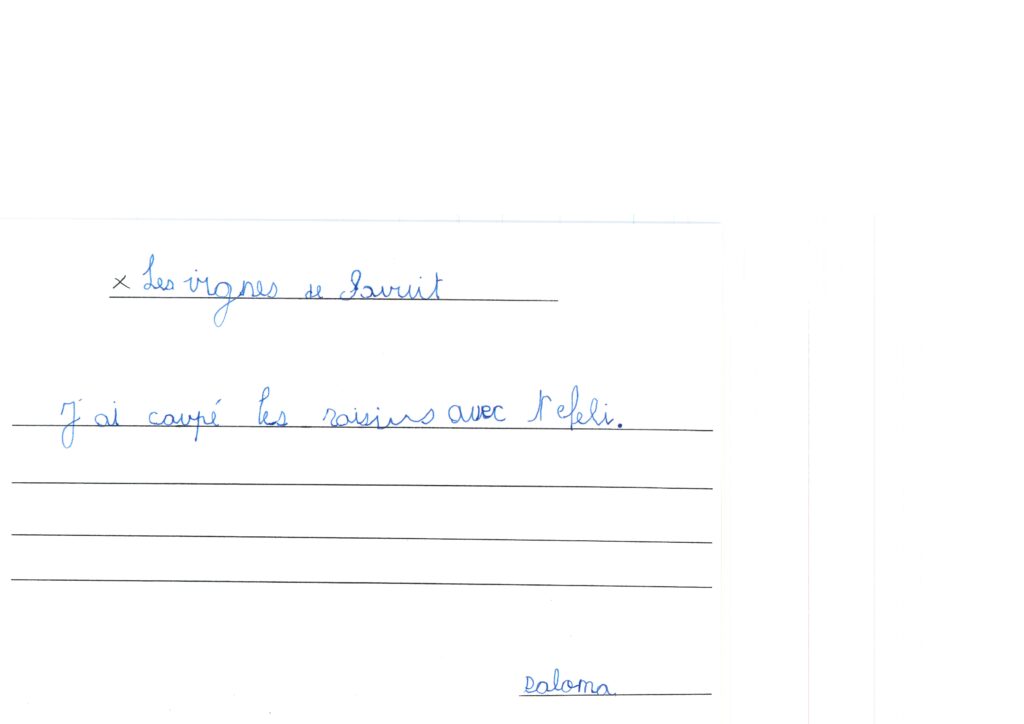 × Les vignes de Savuit
J'ai coupé les raisins avec Nefeli.
Paloma